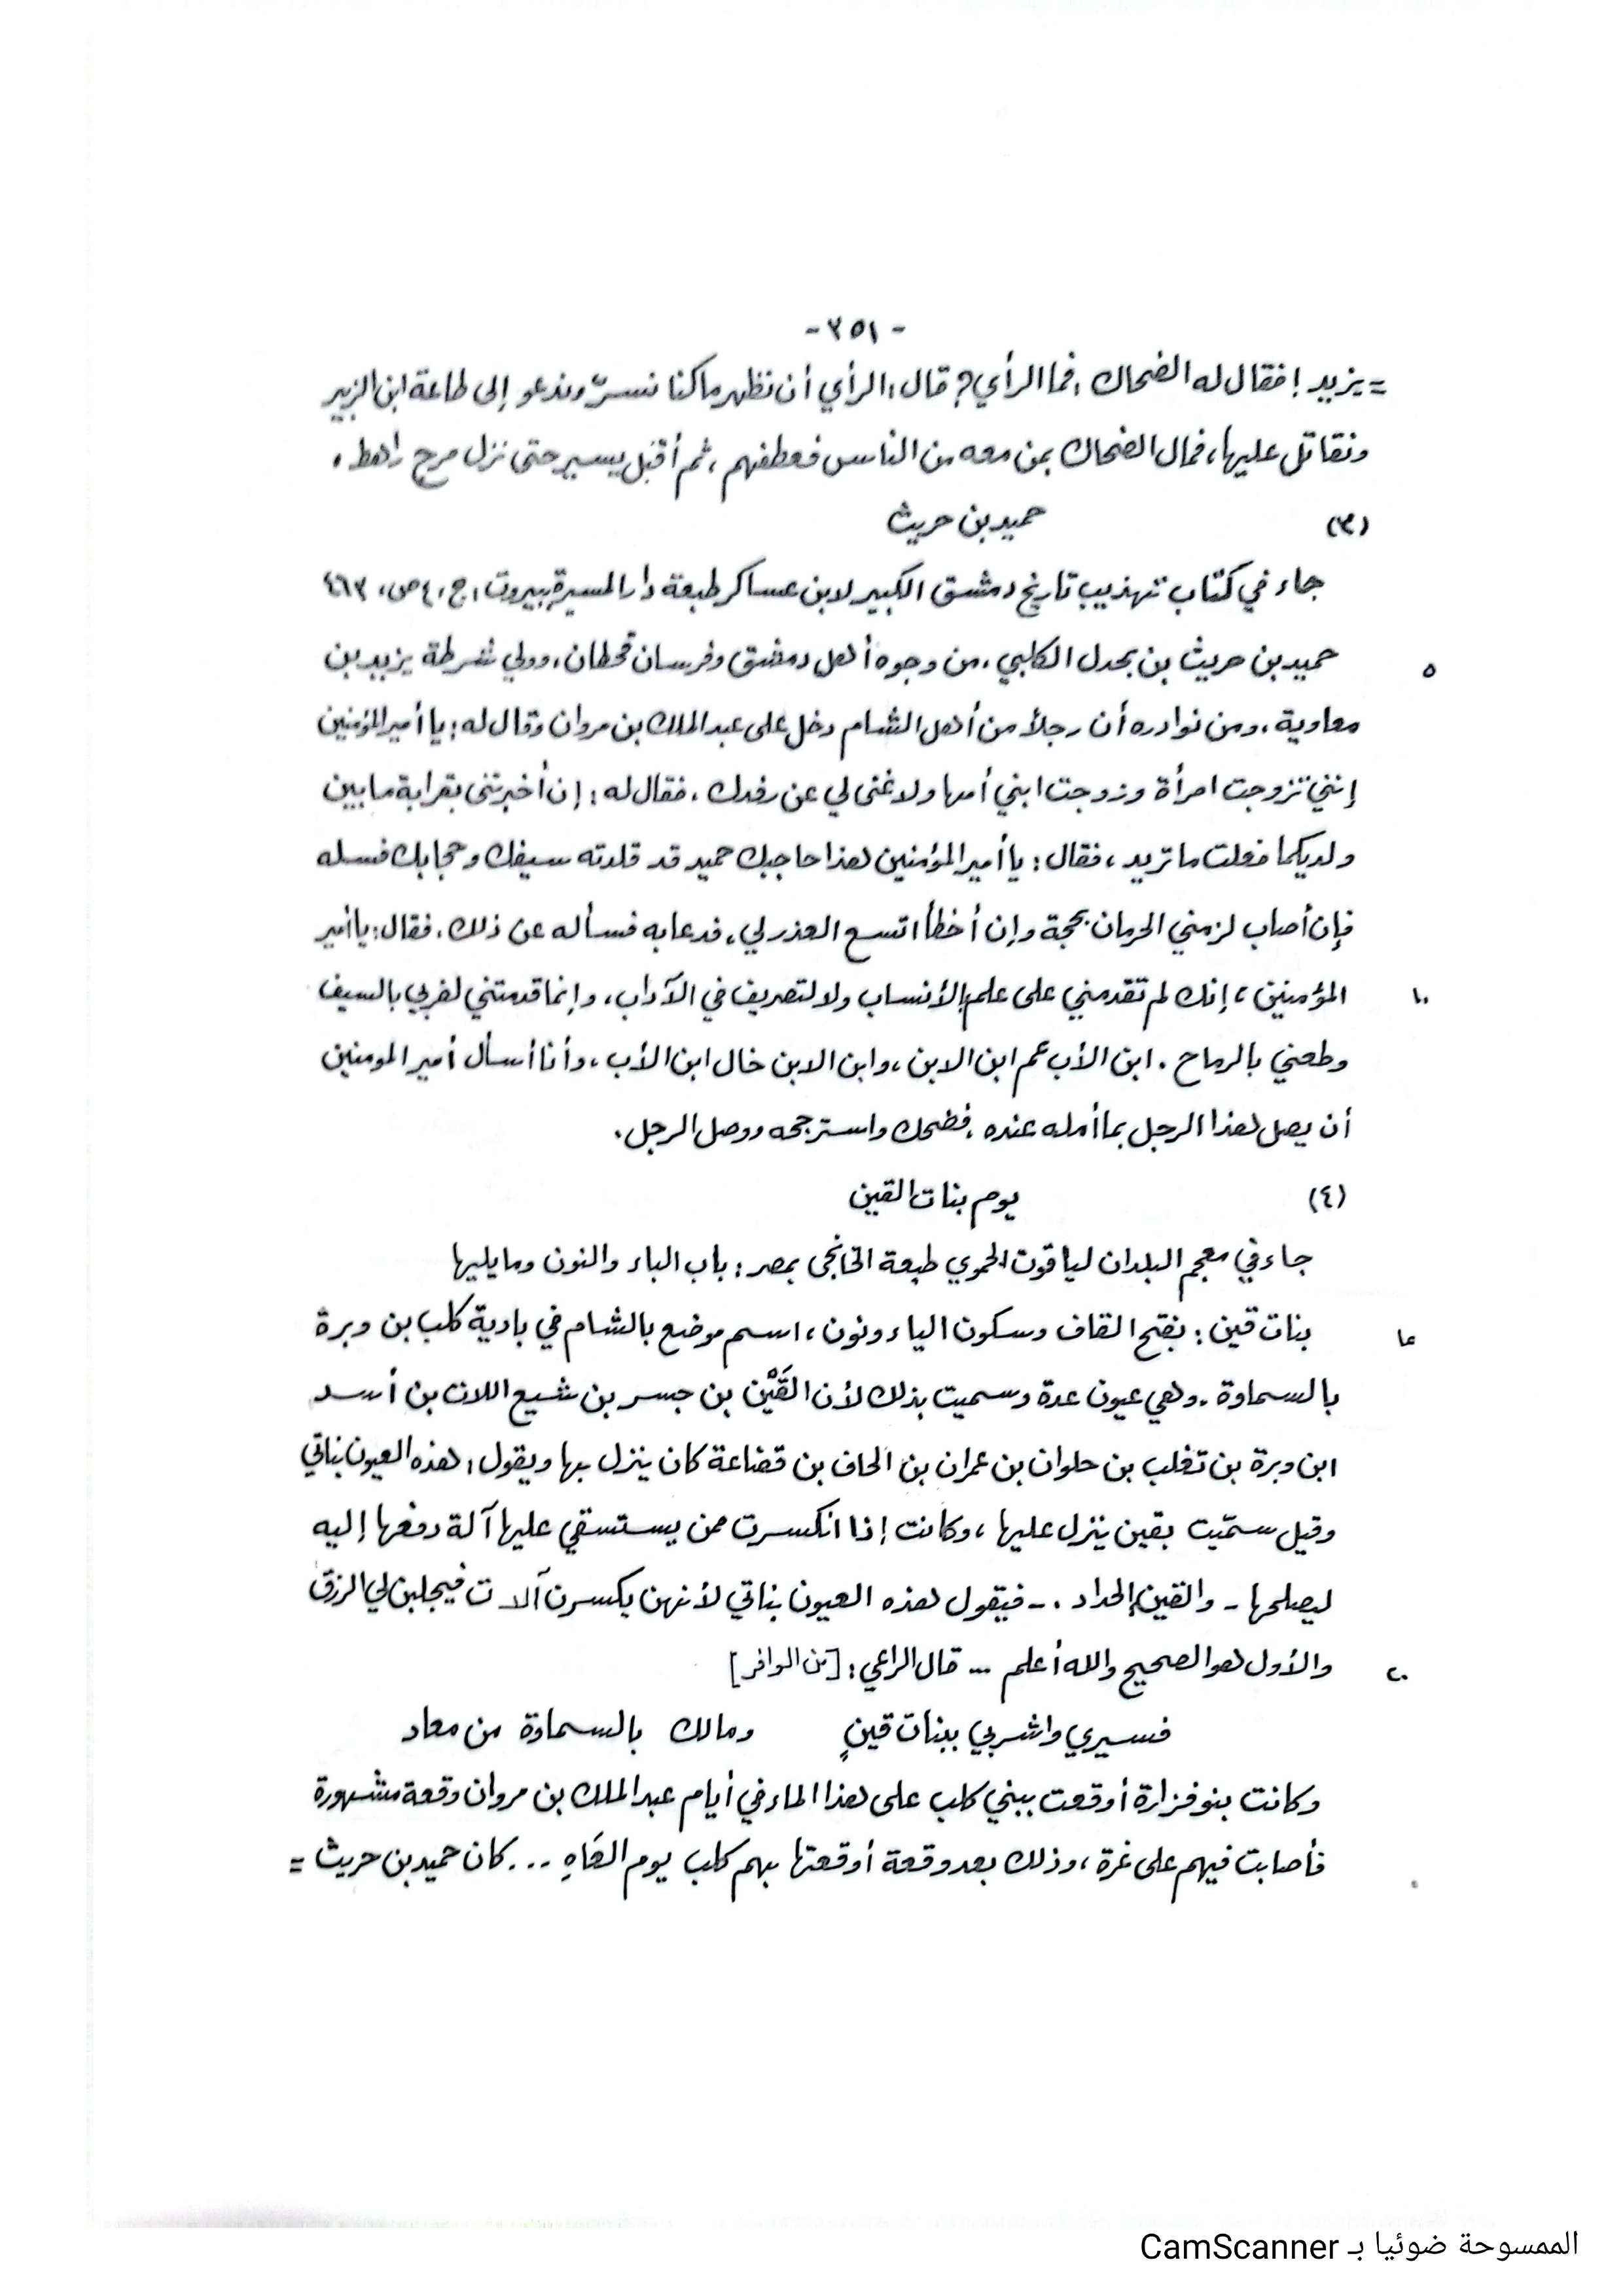 - ٣٥١ -
= يزيد! فقال له الضحاك: فما الرأي؟ قال: الرأي أن نظهر ما كنا نسرّ وندعو إلى طاعة ابن الزبير
ونقاتل عليها، فمال الضحاك بمن معه من الناس فعطفهم، ثم أقبل يسير حتى نزل مرج راهط.
(٣) حميد بن حريث
جاء في كتاب تهذيب تاريخ دمشق الكبير لابن عساكر طبعة دار المسيرة ببيروت، ج: ٤ ص: ٤٦٣
٥ حميد بن حريث بن بحدل الكلبي، من وجوه أهل دمشق وفرسان قحطان، وولي شرطة يزيد بن
معاوية، ومن نوادره أن رجلاً من أهل الشام دخل على عبد الملك بن مروان وقال له: يا أمير المؤمنين
إنني تزوجت امرأة وزوجت ابني أمها ولا غنى لي عن رفدك، فقال له: إن أخبرتني بقرابة ما بين
ولديكما فعلت ما تريد، فقال: يا أمير المؤمنين هذا حاجبك حميد قد قلدته سيفك وحجابك فسله
فإن أصاب لزمني الحرمان بحجة وإن أخطأ اتسع العذر لي، فدعا به فسأله عن ذلك، فقال: يا أمير
١٠ المؤمنين، إنك لم تقدمني على علم بالأنساب ولا لتصريف في الآداب، وإنما قدمتني لضربي بالسيف
وطعني بالرماح. ابن الأب عم ابن الابن، وابن الابن خال ابن الأب، وأنا أسأل أمير المومنين
أن يصل هذا الرجل بما أمله عنده، فضحك واسترجحه ووصل الرجل.
(٤) يوم بنات القين
جاء في معجم البلدان لياقوت الحموي طبعة الخانجى بمصر: باب الباء والنون وما يليها
١٥ بنات قين: بفتح القاف وسكون الياء ونون، اسم موضع بالشام في بادية كلب بن وبرة
بالسماوة. وهي عيون عدة وسميت بذلك لأن القَيْن بن جسر بن شيع اللات بن أسد
ابن وبرة بن تغلب بن حلوان بن عمران بن الحاف بن قضاعة كان ينزل بها ويقول: هذه العيون بناتي
وقيل سمّيت بقين ينزل عليها، وكانت إذا انكسرت ممن يستسقي عليها آلة دفعها إليه
ليصلحها - والقين الحداد. - فيقول هذه العيون بناتي لأنهن يكسرن آلات فيجلبن لي الرزق
٢٠ والأول هو الصحيح والله أعلم ... قال الراعي: [من الوافر]
فسيري واشربي ببنات قينٍ ومالك بالسماوة من معاد
وكانت بنو فزارة أوقعت ببني كلب على هذا الماء في أيام عبد الملك بن مروان وقعة مشهورة
فأصابت فيهم على غرة، وذلك بعد وقعة أوقعتها بهم كلب يوم العَاهِ ... كان حميد بن حريث =
الممسوحة ضوئيا بـ CamScanner